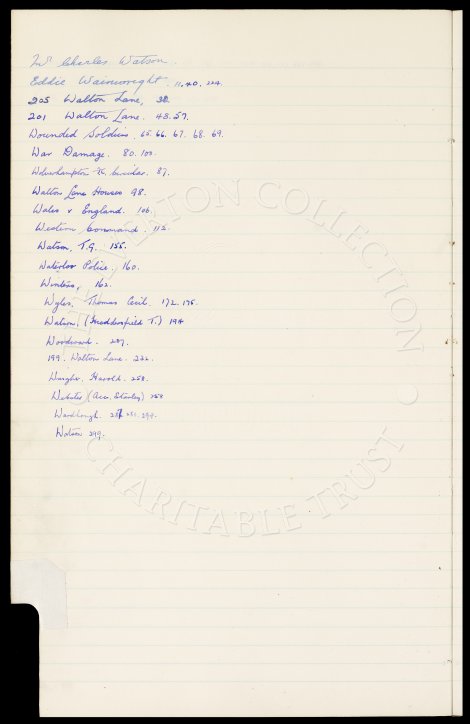 Mr Charles Watson.
Eddie Wainwright. 11, 40, 224.
205 Walton Lane, 38.
201 Walton Lane. 43. 57.
Wounded Soldiers. 65. 66. 67. 68. 69.
War Damage. 80. 100.
Wolverhampton circular. 87.
Walton Lane Houses 98.
Wales v England. 106.
Western Command. 112.
Watson, T.G. 155.
Waterloo Police. 160.
Winters, 162.
Wyles, Thomas Cecil. 172. 175.
Watson, (Huddersfield T.) 194
Woodward. 207.
199. Walton Lane. 222.
Harold. 258.
Webster (Acc. Stanley) 258
299.
Watson 299.
EVERTON COLLECTION
CHARITABLE TRUST